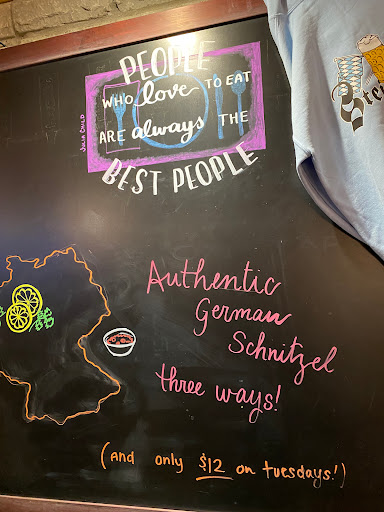 PEOPLE
WHO love TO EAT
ARE always THE
BEST PEOPLE
JULIA CHILD
Authentic
German
Schnitzel
three ways!
(And only $12 on tuesdays!)